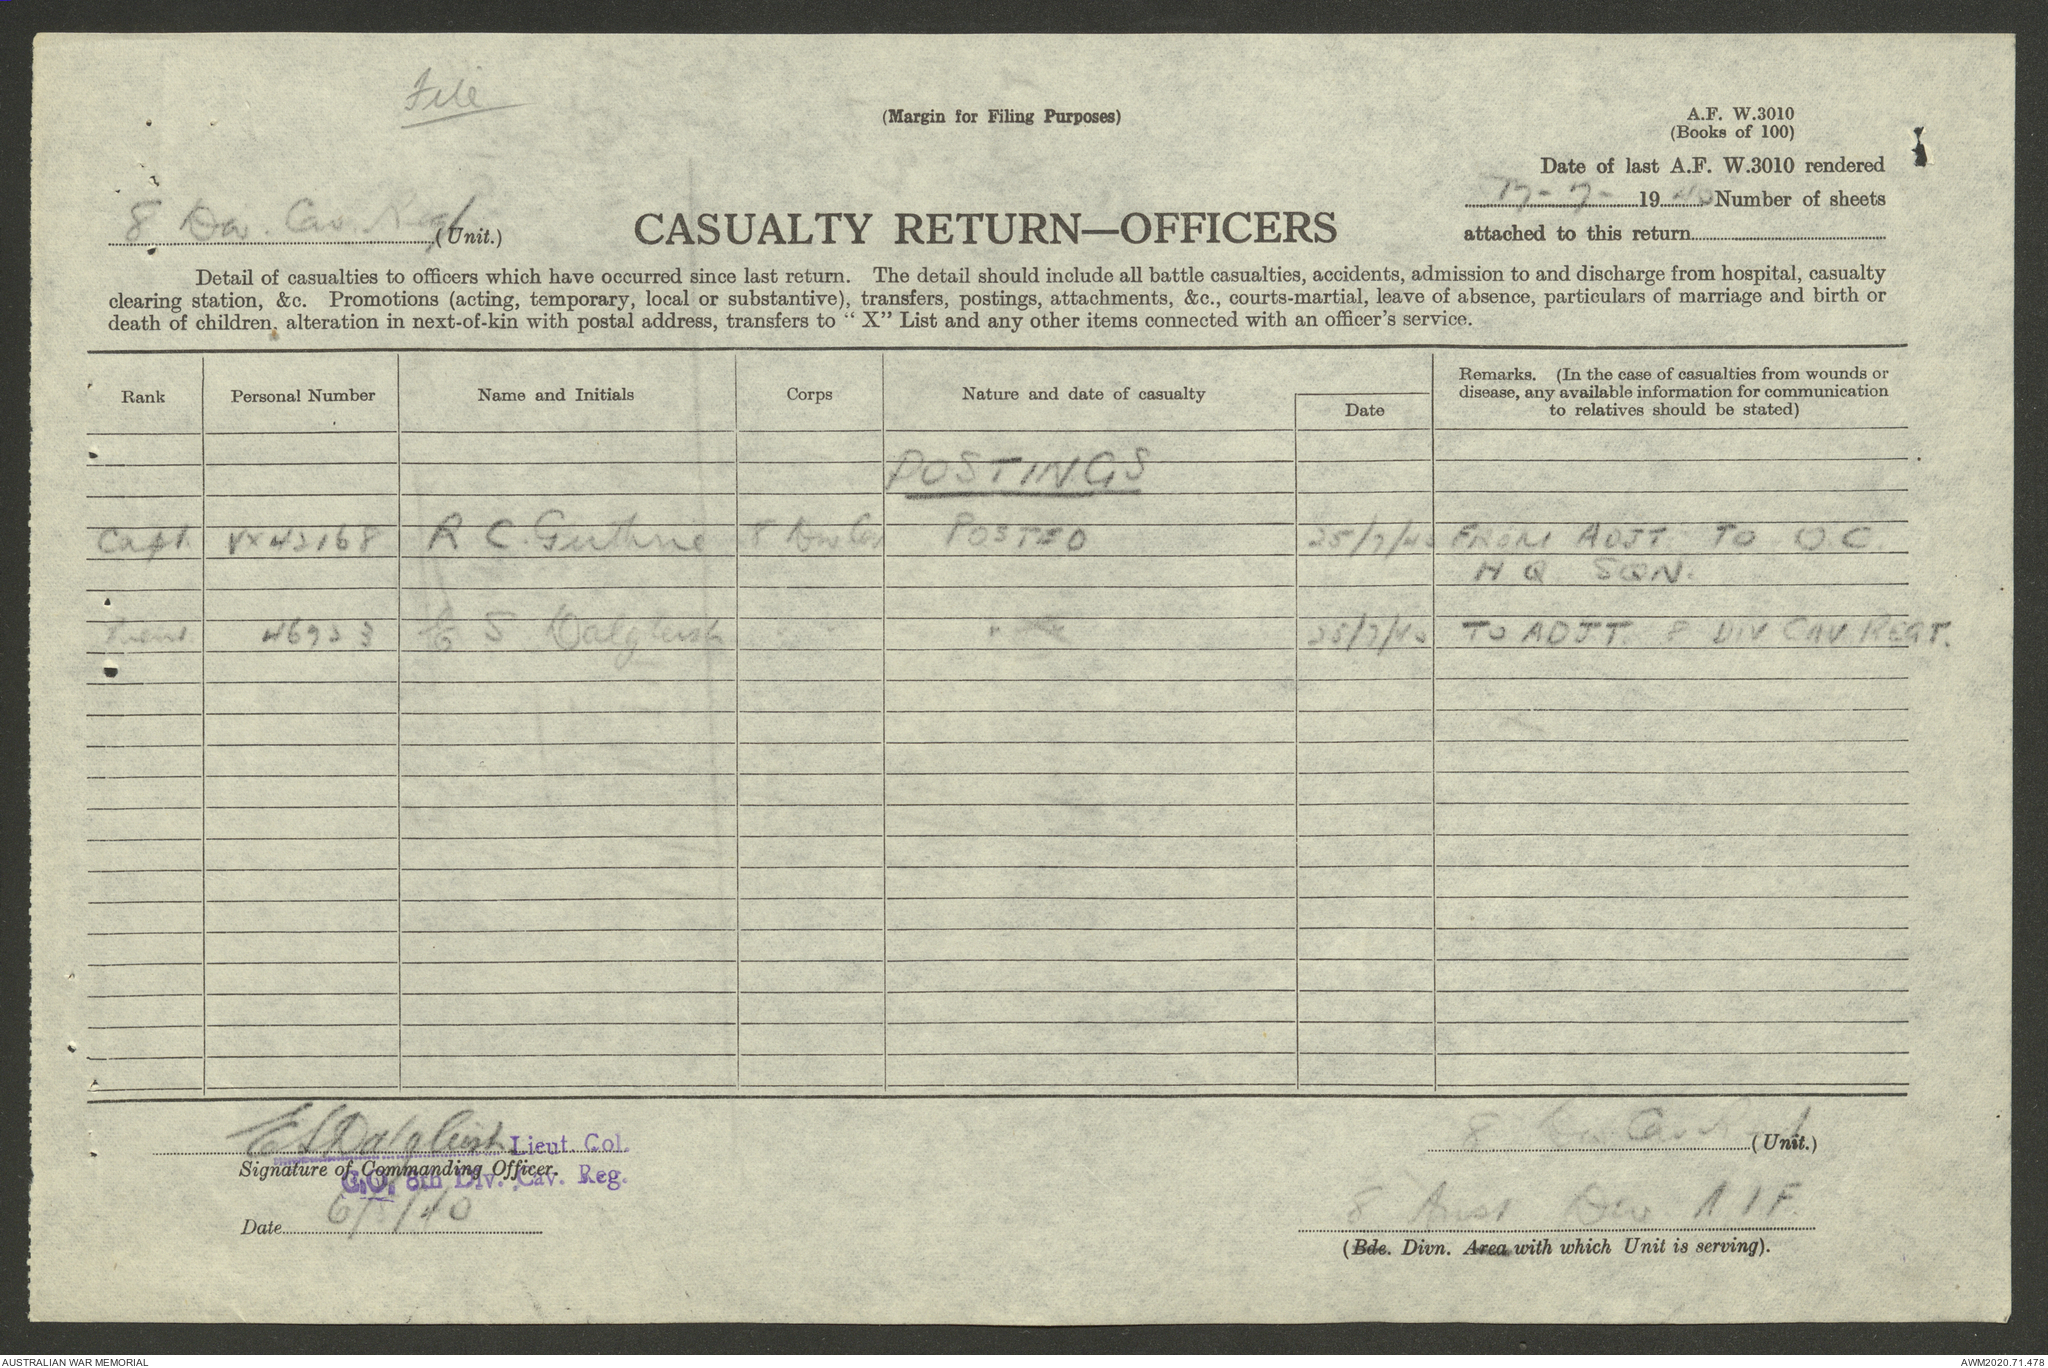 File
(Margin for Filing Purposes)
A.F. W.3010
(Books of 100)
Date of last A.F. W.3010 rendered
17-7-1940 Number of sheets
attached to this return
8 Div. Cav. Regt (Unit.)
CASUALTY RETURN—OFFICERS
Detail of casualties to officers which have occurred since last return. The detail should include all battle casualties, accidents, admission to and discharge from hospital, casualty
clearing station, &c. Promotions (acting, temporary, local or substantive), transfers, postings, attachments, &c., courts-martial, leave of absence, particulars of marriage and birth or
death of children, alteration in next-of-kin with postal address, transfers to "X" List and any other items connected with an officer's service.
Rank Personal Number Name and Initials Corps Nature and date of casualty Date Remarks. (In the case of casualties from wounds or
disease, any available information for communication
to relatives should be stated)
POSTINGS
Capt. VX42168 R C. Guthrie 8 Div Cav POSTED 25/7/40 FROM ADJT TO O.C.
H Q SQN.
Lieut. E S Dalgleish " 25/7/40 TO ADJT. 8 DIV CAV. REGT.
E S Dalgleish Lieut. Col.
Signature of Commanding Officer.
C.O. 8th Div. Cav. Reg.
Date
8 Div Cav Regt (Unit.)
8 Aust Div A I F.
(Bde. Divn. Area with which Unit is serving).
AUSTRALIAN WAR MEMORIAL
AWM2020.71.478